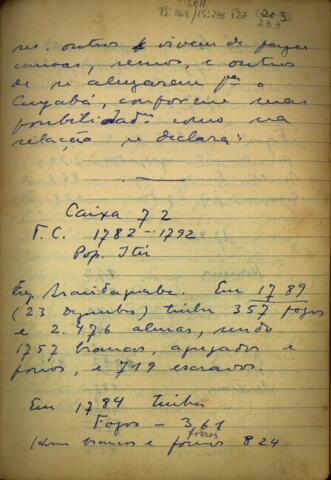 SBH
Pi 063/15:293 P27 (203)
233
res. outros vivem de fazer
canoas, remos, e outros
de se alugarem pª o
Cuyabá, conforme suas
possibilidades como na
relação se declara:
Caixa 72
T.C. 1782-1792
Pop. Itú
Freg. Araritaguaba. Em 1789
(23 Dezembro) tinha 357 fogos
e 2.476 almas, sendo
1757 brancos, agregados e
forros, e 719 escravos.
Em 1784 tinha
Fogos - 361
brancos e forros 824